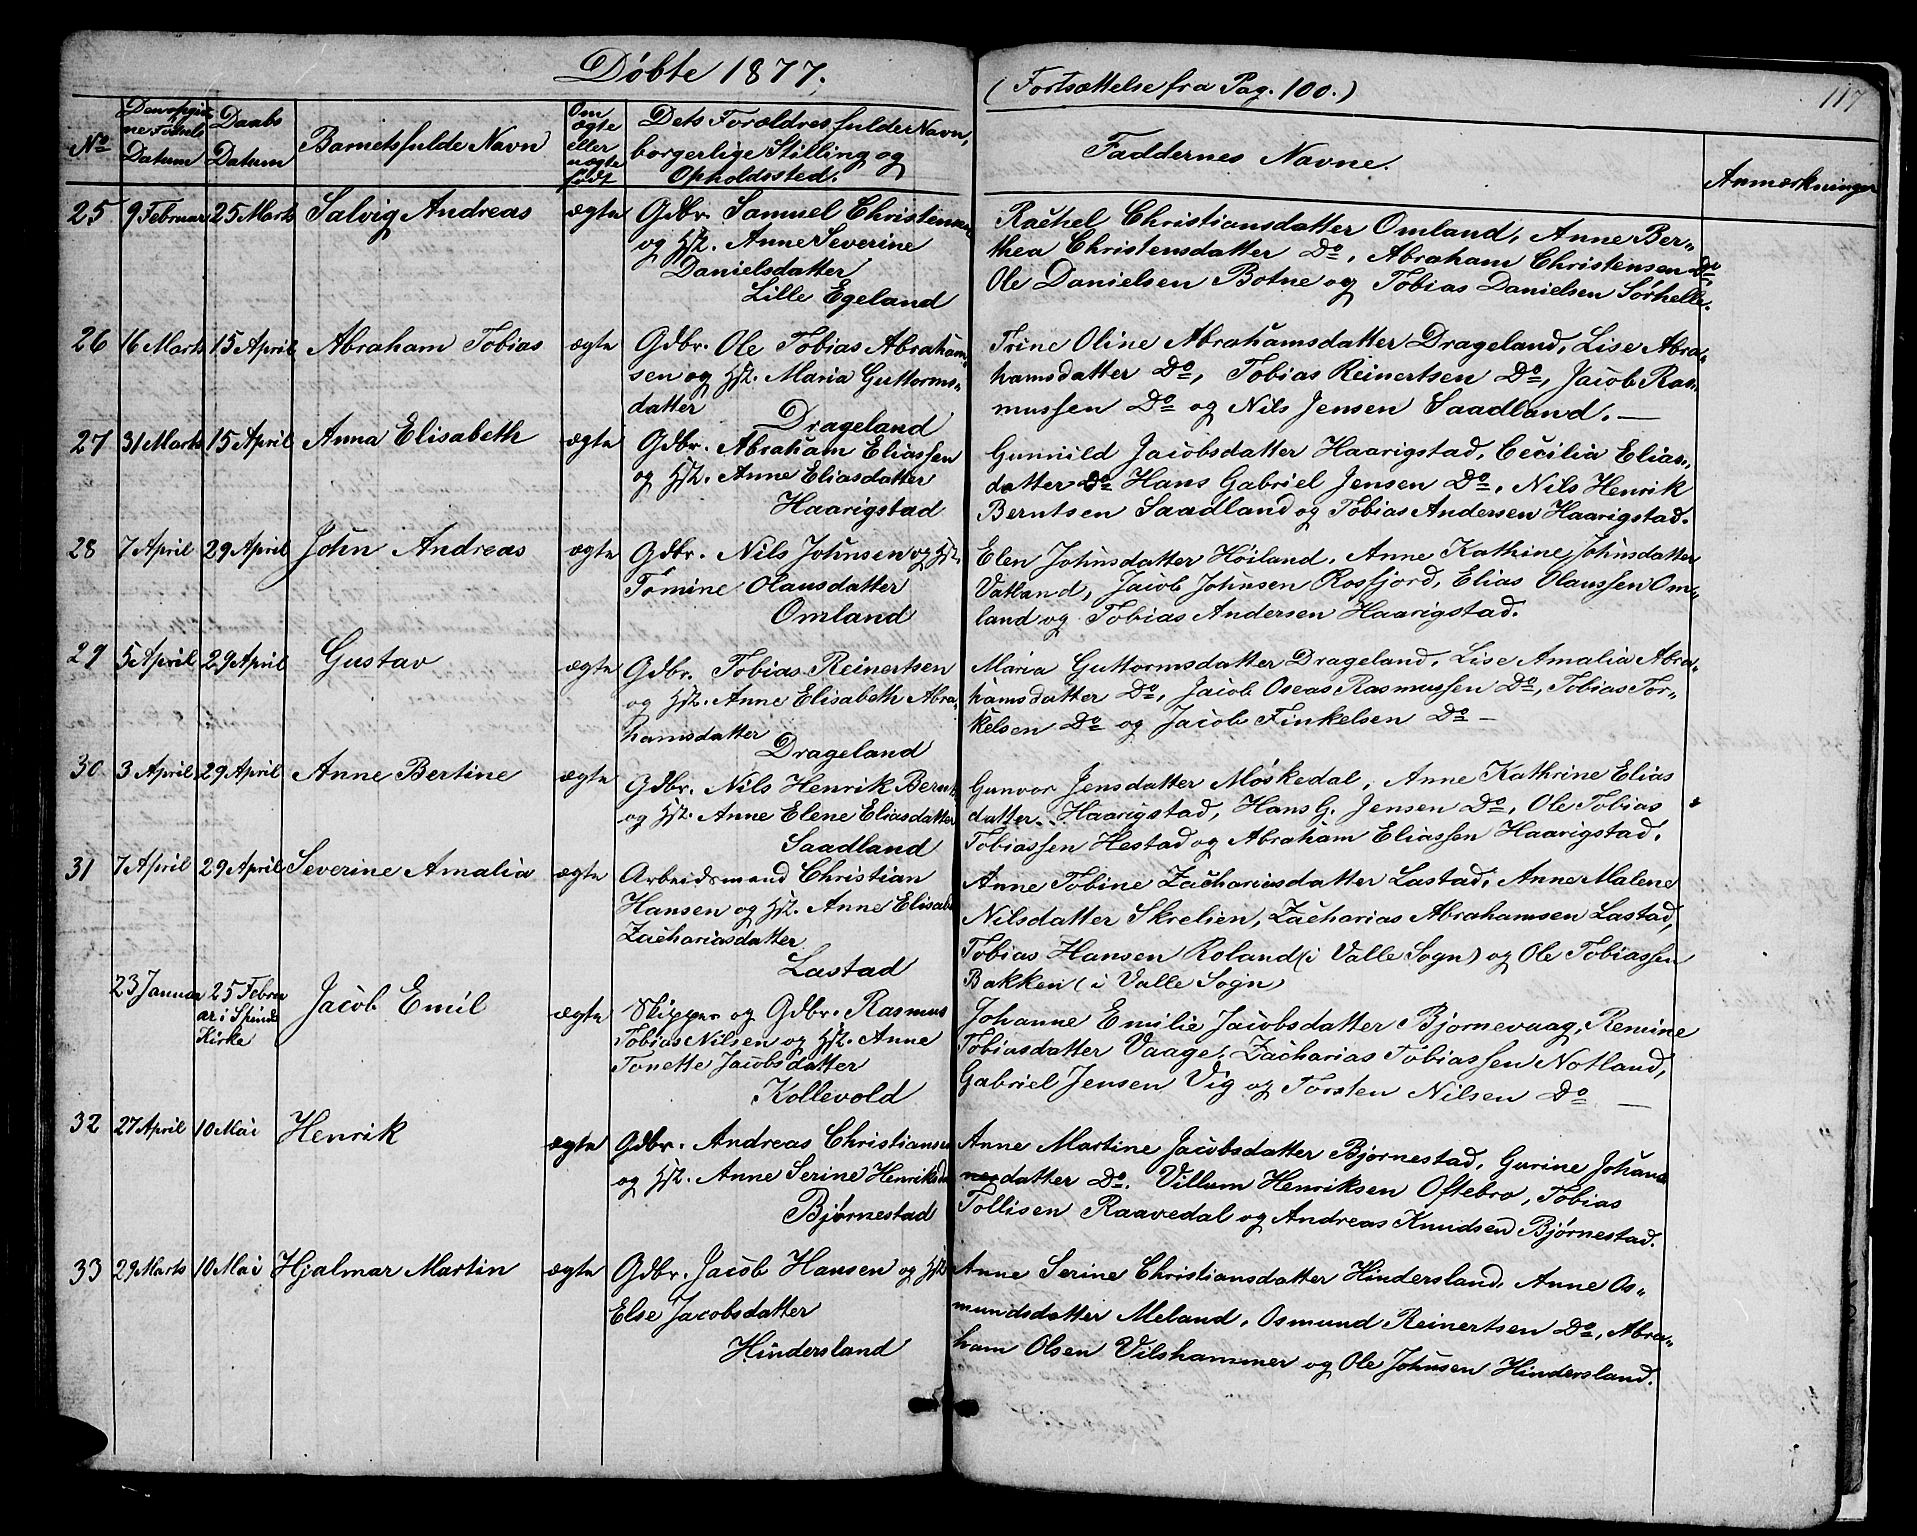 Döbte 1877.
(Fortsættelse fra Pag. 100.)
117
No
Datum
Daabs Datum
Barnets fulde Navn
Om ægte eller uægte født
Dets Forældres fulde Navn,
borgerlige Stilling og
Opholdssted.
Faddernes Navne.
Anmærkninger
25 9 Februar 25 Marts Salvig Andreas ægte Gdbr. Samuel Christensen
og Hst. Anne Severine
Danielsdatter
Lille Egeland
Rachel Christiansdatter Omland, Anne Ber-
thea Christensdatter Do, Abraham Christensen Do,
Ole Danielsen Botne og Tobias Danielsen Sørhelle.
26 16 Marts 15 April Abraham Tobias ægte Gdbr. Ole Tobias Abraham-
sen og Hst. Maria Guttorms-
datter
Drageland
Trine Oline Abrahamsdatter Drageland, Lise Abra-
hamsdatter Do, Tobias Reinertsen Do, Jacob Ras-
mussen Do og Nils Jensen Saadland. —
27 31 Marts 15 April Anna Elisabeth ægte Gdbr. Abraham Eliassen
og Hst. Anne Eliasdatter
Haarigstad
Gunnild Jacobsdatter Haarigstad, Cecilia Elias-
datter Do Hans Gabriel Jensen Do, Nils Henrik
Berntsen Saadland og Tobias Andersen Haarigstad.
28 7 April 29 April John Andreas ægte Gdbr. Nils Johnsen og Hst.
Tomine Olausdatter
Omland
Elen Johnsdatter Høiland, Anne Kathine Johnsdatter
Vatland, Jacob Johnsen Rosfjord, Elias Olaussen Om-
land og Tobias Andersen Haarigstad.
29 5 April 29 April Gustav ægte Gdbr. Tobias Reinertsen
og Hst. Anne Elisabeth Abra-
hamsdatter
Drageland
Maria Guttormsdatter Drageland, Lise Amalia Abra-
hamsdatter Do, Jacob Oseas Rasmussen Do, Tobias Tor-
kelsen Do og Jacob Finkelsen Do —
30 3 April 29 April Anne Bertine ægte Gdbr. Nils Henrik Bernts
og Hst. Anne Elene Eliasdatter
Saadland
Gunvor Jensdatter Møskedal, Anne Kathrine Elias
datter Haarigstad, Hans G. Jensen Do, Ole Tobias
Tobiassen Hestad og Abraham Eliassen Haarigstad.
31 7 April 29 April Severine Amalia ægte Arbeidsmand Christian
Hansen og Hst. Anne Elisab
Zachariasdatter
Lastad
Anne Tobine Zachariasdatter Lastad, Anne Malene
Nilsdatter Skrelien, Zacharias Abrahamsen Lastad,
Tobias Hansen Roland (i Valle Sogn) og Ole Tobiassen
Bakken (i Valle Sogn)
23 Januar 25 Febru
ar i Spinds
Kirke
Jacob Emil ægte Skipper og Gdbr. Rasmus
Tobias Nilsen og Hst. Anne
Tonette Jacobsdatter
Kollevold
Johanne Emilie Jacobsdatter Bjornevaag, Remine
Tobiasdatter Vaage, Zacharias Tobiassen Notland,
Gabriel Jensen Vig og Torsten Nilsen Do —
32 27 April 10 Mai Henrik ægte Gdbr. Andreas Christiansen
og Hst. Anne Serine Henriksd
Bjørnestad
Anne Martine Jacobsdatter Bjørnestad, Gurine Johan
nesdatter Do. Villum Henriksen Oftebro, Tobias
Tollisen Raavedal og Andreas Knudsen Bjørnestad.
33 29 Marts 10 Mai Hjalmar Martin ægte Gdbr. Jacob Hansen og Hst
Else Jacobsdatter
Hindersland
Anne Serine Christiansdatter Hindersland, Anne Os-
mundsdatter Meland, Osmund Reinertsen Do, Abra-
ham Olsen Vilshammer og Ole Johnsen Hindersland.